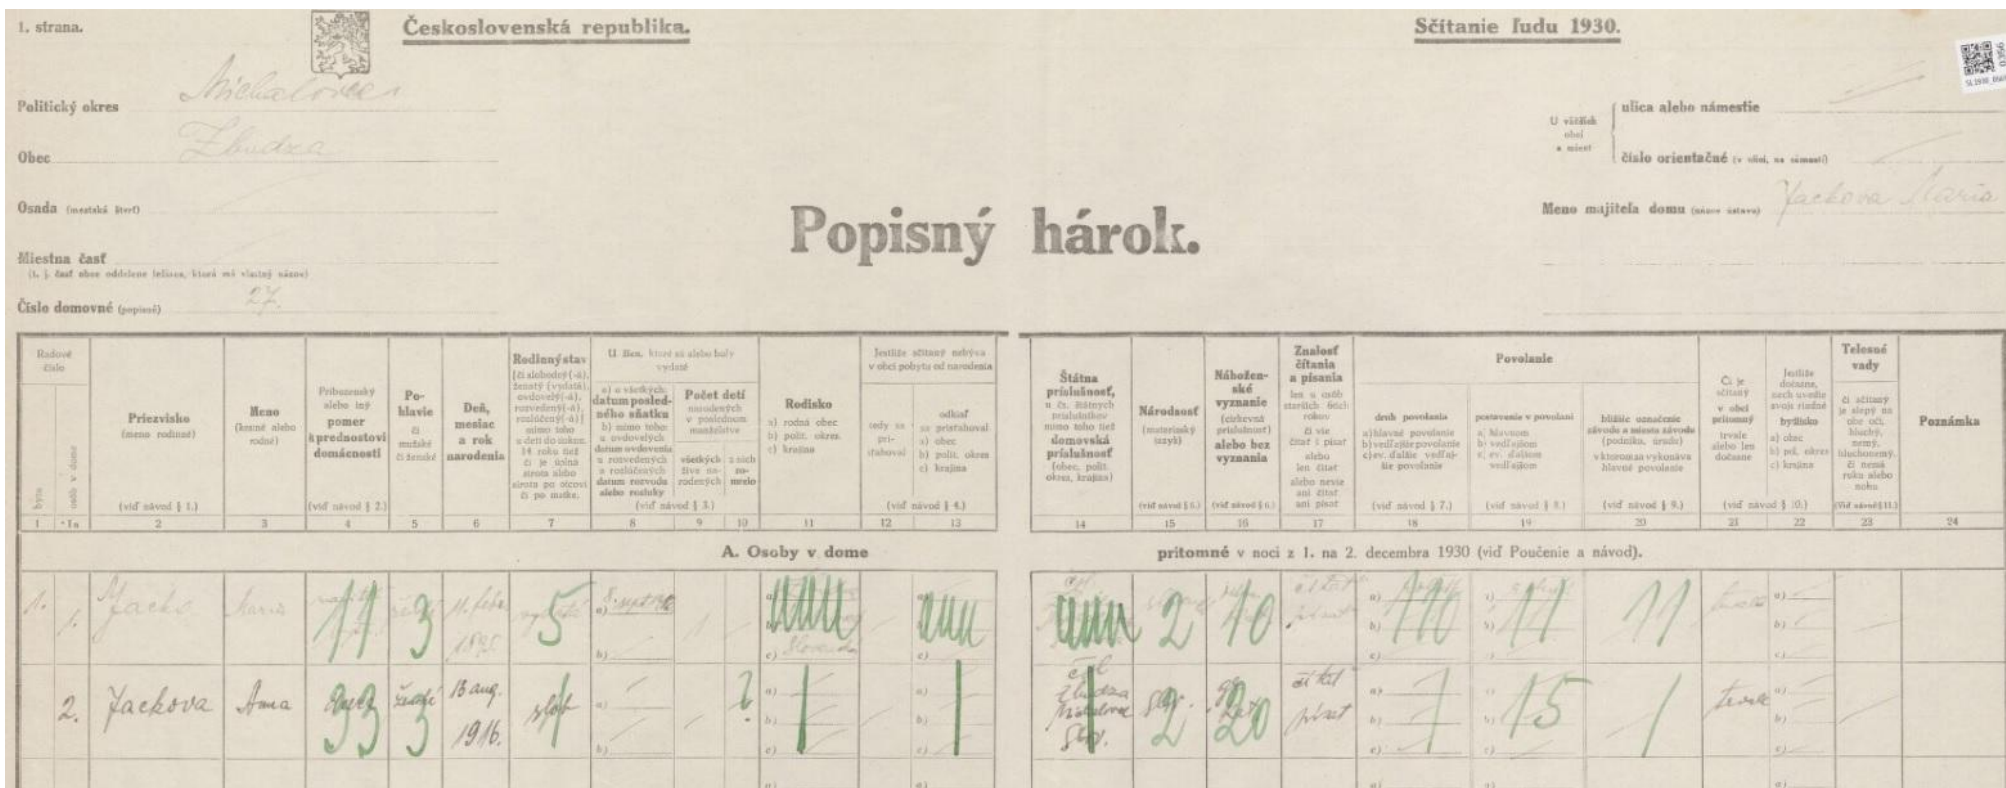 1. strana.
Československá republika.
Sčítanie ľudu 1930.
Politický okres Michalovce
Obec Zbudza
Osada (mestská štvrť)
Miestna časť
(t. j. časť obce oddelene ležiaca, ktorá má vlastný názov)
Číslo domovné (popisné) 27.
Popisný hárok.
U väčších obcí a miest
ulica alebo námestie
číslo orientačné (v ulici, na námestí)
Meno majiteľa domu (názov ústavu) Jackova Maria
Radové číslo
bytu
osôb v dome
Priezvisko
(meno rodinné)
(viď návod § 1.)
Meno
(krstné alebo rodné)
Príbuzenský alebo iný pomer k prednostovi domácnosti
(viď návod § 2.)
Pohlavie
či mužské či ženské
Deň, mesiac a rok narodenia
Rodinný stav
[či slobodný(-á), ženatý (vydatá), ovdovelý(-á), rozvedený(-á), rozlúčený(-á)]
mimo toho u detí do dokon. 14. roku tiež či je úplná sirota alebo sirota po otcovi či po matke.
U žien, ktoré sú alebo boly vydaté
a) u všetkých: datum posledného sňatku
b) mimo toho: u ovdovelých datum ovdovenia u rozvedených a rozlúčených datum rozvodu alebo rozluky
Počet detí
narodených v poslednom manželstve
všetkých živo narodených
z nich zomrelo
(viď návod § 3.)
Rodisko
a) rodná obec
b) polit. okres
c) krajina
Jestliže sčítaný nebýva v obci pobytu od narodenia
kedy sa prisťahoval
odkiaľ sa prisťahoval
a) obec
b) polit. okres
c) krajina
(viď návod § 4.)
Štátna príslušnosť,
u čs. štátnych príslušníkov mimo toho tiež
domovská príslušnosť
(obec, polit. okres, krajina)
Národnosť
(materinský jazyk)
(viď návod § 5.)
Náboženské vyznanie
(cirkevná príslušnosť)
alebo bez vyznania
(viď návod § 6.)
Znalosť čítania a písania
len u osôb starších 6tich rokov
či vie čítať i písať alebo len čítať alebo nevie ani čítať ani písať
Povolanie
druh povolania
a) hlavné povolanie
b) vedľajšie povolanie
c) ev. ďalšie vedľajšie povolanie
(viď návod § 7.)
postavenie v povolaní
a) hlavnom
b) vedľajšom
c) ev. ďalšom vedľajšom
(viď návod § 8.)
bližšie označenie závodu a miesta závodu
(podniku, úradu)
v ktorom sa vykonáva hlavné povolanie
(viď návod § 9.)
Či je sčítaný v obci prítomný
trvale alebo len dočasne
Jestliže dočasne, nech uvedie svoje riadné bydlisko
a) obec
b) pol. okres
c) krajina
(viď návod § 10.)
Telesné vady
či sčítaný je slepý na obe oči, hluchý, nemý, hluchonemý, či nemá ruku alebo nohu
(Viď návod § 11.)
Poznámka
1 1a 2 3 4 5 6 7 8 9 10 11 12 13 14 15 16 17 18 19 20 21 22 23 24
A. Osoby v dome prítomné v noci z 1. na 2. decembra 1930 (viď Poučenie a návod).
1. 1. Jacko Maria 11 3 11. 5 a) 8. sept b) c) Slovensko čsl 2 10 čítať písať 110 11 11
2. Jackova Anna 33 ženské 3 13 aug. 1916. slob a) b) ? čsl Zbudza Michalovce Slov. Slov. 2 20 čítať písať 15 trvale